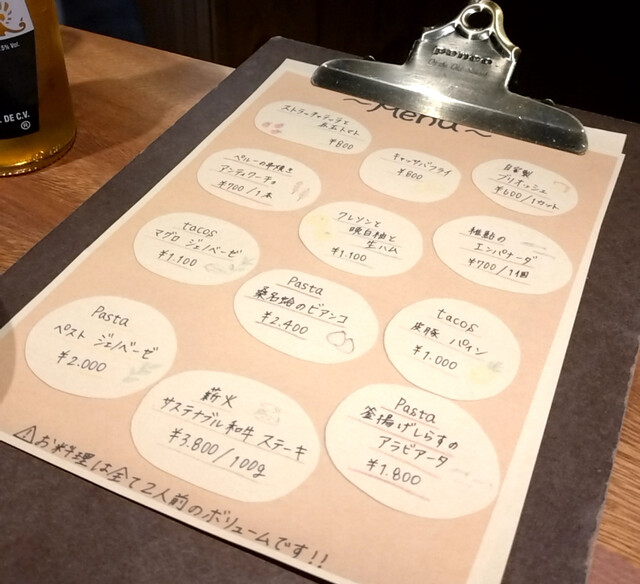 5% Vol.
. DE C.V.
®
penco
~Menu~
ストラッチャテッラと
水玉トマト
¥800
ペルーの串焼き
アンティクーチョ
¥700/1本
キャッサバフライ
¥800
自家製
ブリオッシュ
¥600/1カット
tacos
マグロ ジェノベーゼ
¥1.100
クレソンと
晩白柚と
生ハム
¥1.100
エンパナーダ
¥700/1個
Pasta
ペスト ジェノベーゼ
¥2.000
Pasta
桑名蛤のビアンコ
¥2.400
tacos
皮豚 パイン
¥1.000
薪火
サステナブル和牛ステーキ
¥3.800/100g
Pasta
釜揚げしらすの
アラビアータ
¥1.800
⚠お料理は全て2人前のボリュームです!!